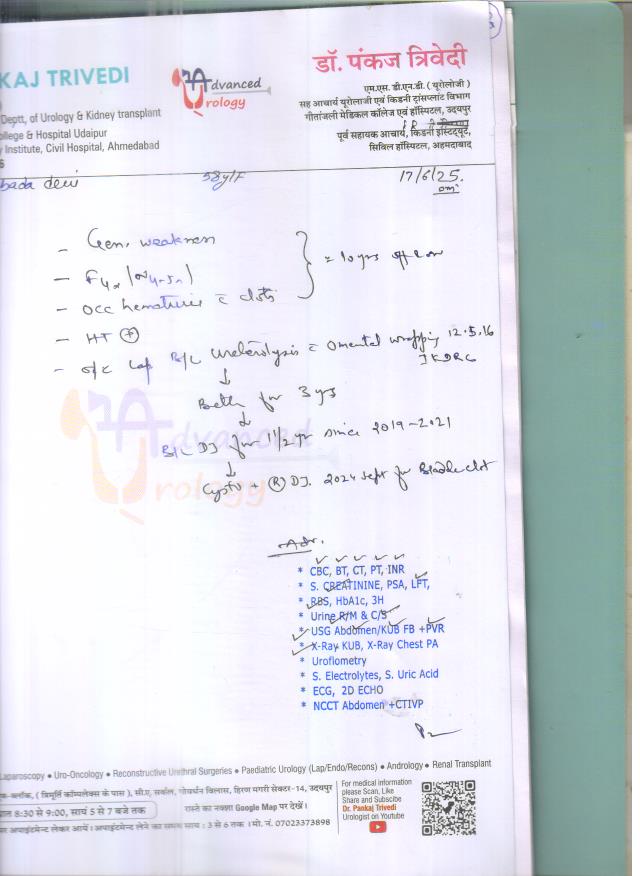 KAJ TRIVEDI
Advanced
Urology
डॉ. पंकज त्रिवेदी
एम.एस. डी.एन.बी. ( यूरोलोजी )
Deptt, of Urology & Kidney transplant
सह आचार्य यूरोलाजी एवं किडनी ट्रांसप्लांट विभाग
ollege & Hospital Udaipur
गीतांजली मेडिकल कॉलेज एवं हॉस्पिटल, उदयपुर
Institute, Civil Hospital, Ahmedabad
पूर्व सहायक आचार्य, किडनी इंस्टिट्यूट,
सिविल हॉस्पिटल, अहमदाबाद
bada devi 58y/F 17/6/25.
- Gen. weakness
- occ hematuria c̄ clots
= 10 yrs
- HT (+)
Lap B/L Ureterolysis c̄ Omental wrapping 12.5.16
IKDRC
↓
Better for 3 yrs
↓
B/L DJ for 1 1/2 yr since 2019-2021
↓
Cysto + (R) DJ. 2024 Sept for Bladder clot
Adv.
* CBC, BT, CT, PT, INR
* S. CREATININE, PSA, LFT,
* RBS, HbA1c, 3H
* Urine R/M & C/S
* USG Abdomen/KUB FB +PVR
* X-Ray KUB, X-Ray Chest PA
* Uroflometry
* S. Electrolytes, S. Uric Acid
* ECG, 2D ECHO
* NCCT Abdomen +CTIVP
Laparoscopy • Uro-Oncology • Reconstructive Urethral Surgeries • Paediatric Urology (Lap/Endo/Recons) • Andrology • Renal Transplant
ब्लॉक, ( त्रिमूर्ति कॉम्पलेक्स के पास ), सी.ए. सर्कल, गोवर्धन विलास, हिरण मगरी सेक्टर-14, उदयपुर
8:30 से 9:00, सायं 5 से 7 बजे तक
रास्ते का नक्शा Google Map पर देखें।
अपाइंटमेन्ट लेकर आयें। अपाइंटमेन्ट लेने का समय सायं : 3 से 6 तक । मो. नं. 07023373898
For medical information
please Scan, Like
Share and Subscibe
Dr. Pankaj Trivedi
Urologist on Youtube